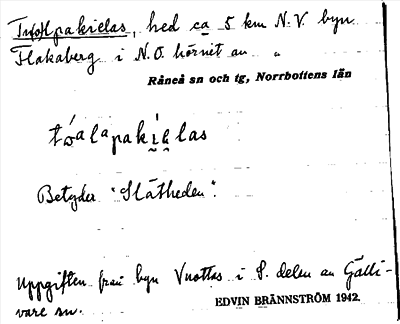 Tvålpakielas, hed ca 5 km N.V. byn
Flakaberg i N.O. hörnet av "
Råneå sn och tg, Norrbottens län
tẃalapaki̯e̯las
Betyder "Slätheden".
Uppgiften från byn Vuottas i S. delen av Gälli-
vare sn.
EDVIN BRÄNNSTRÖM 1942.